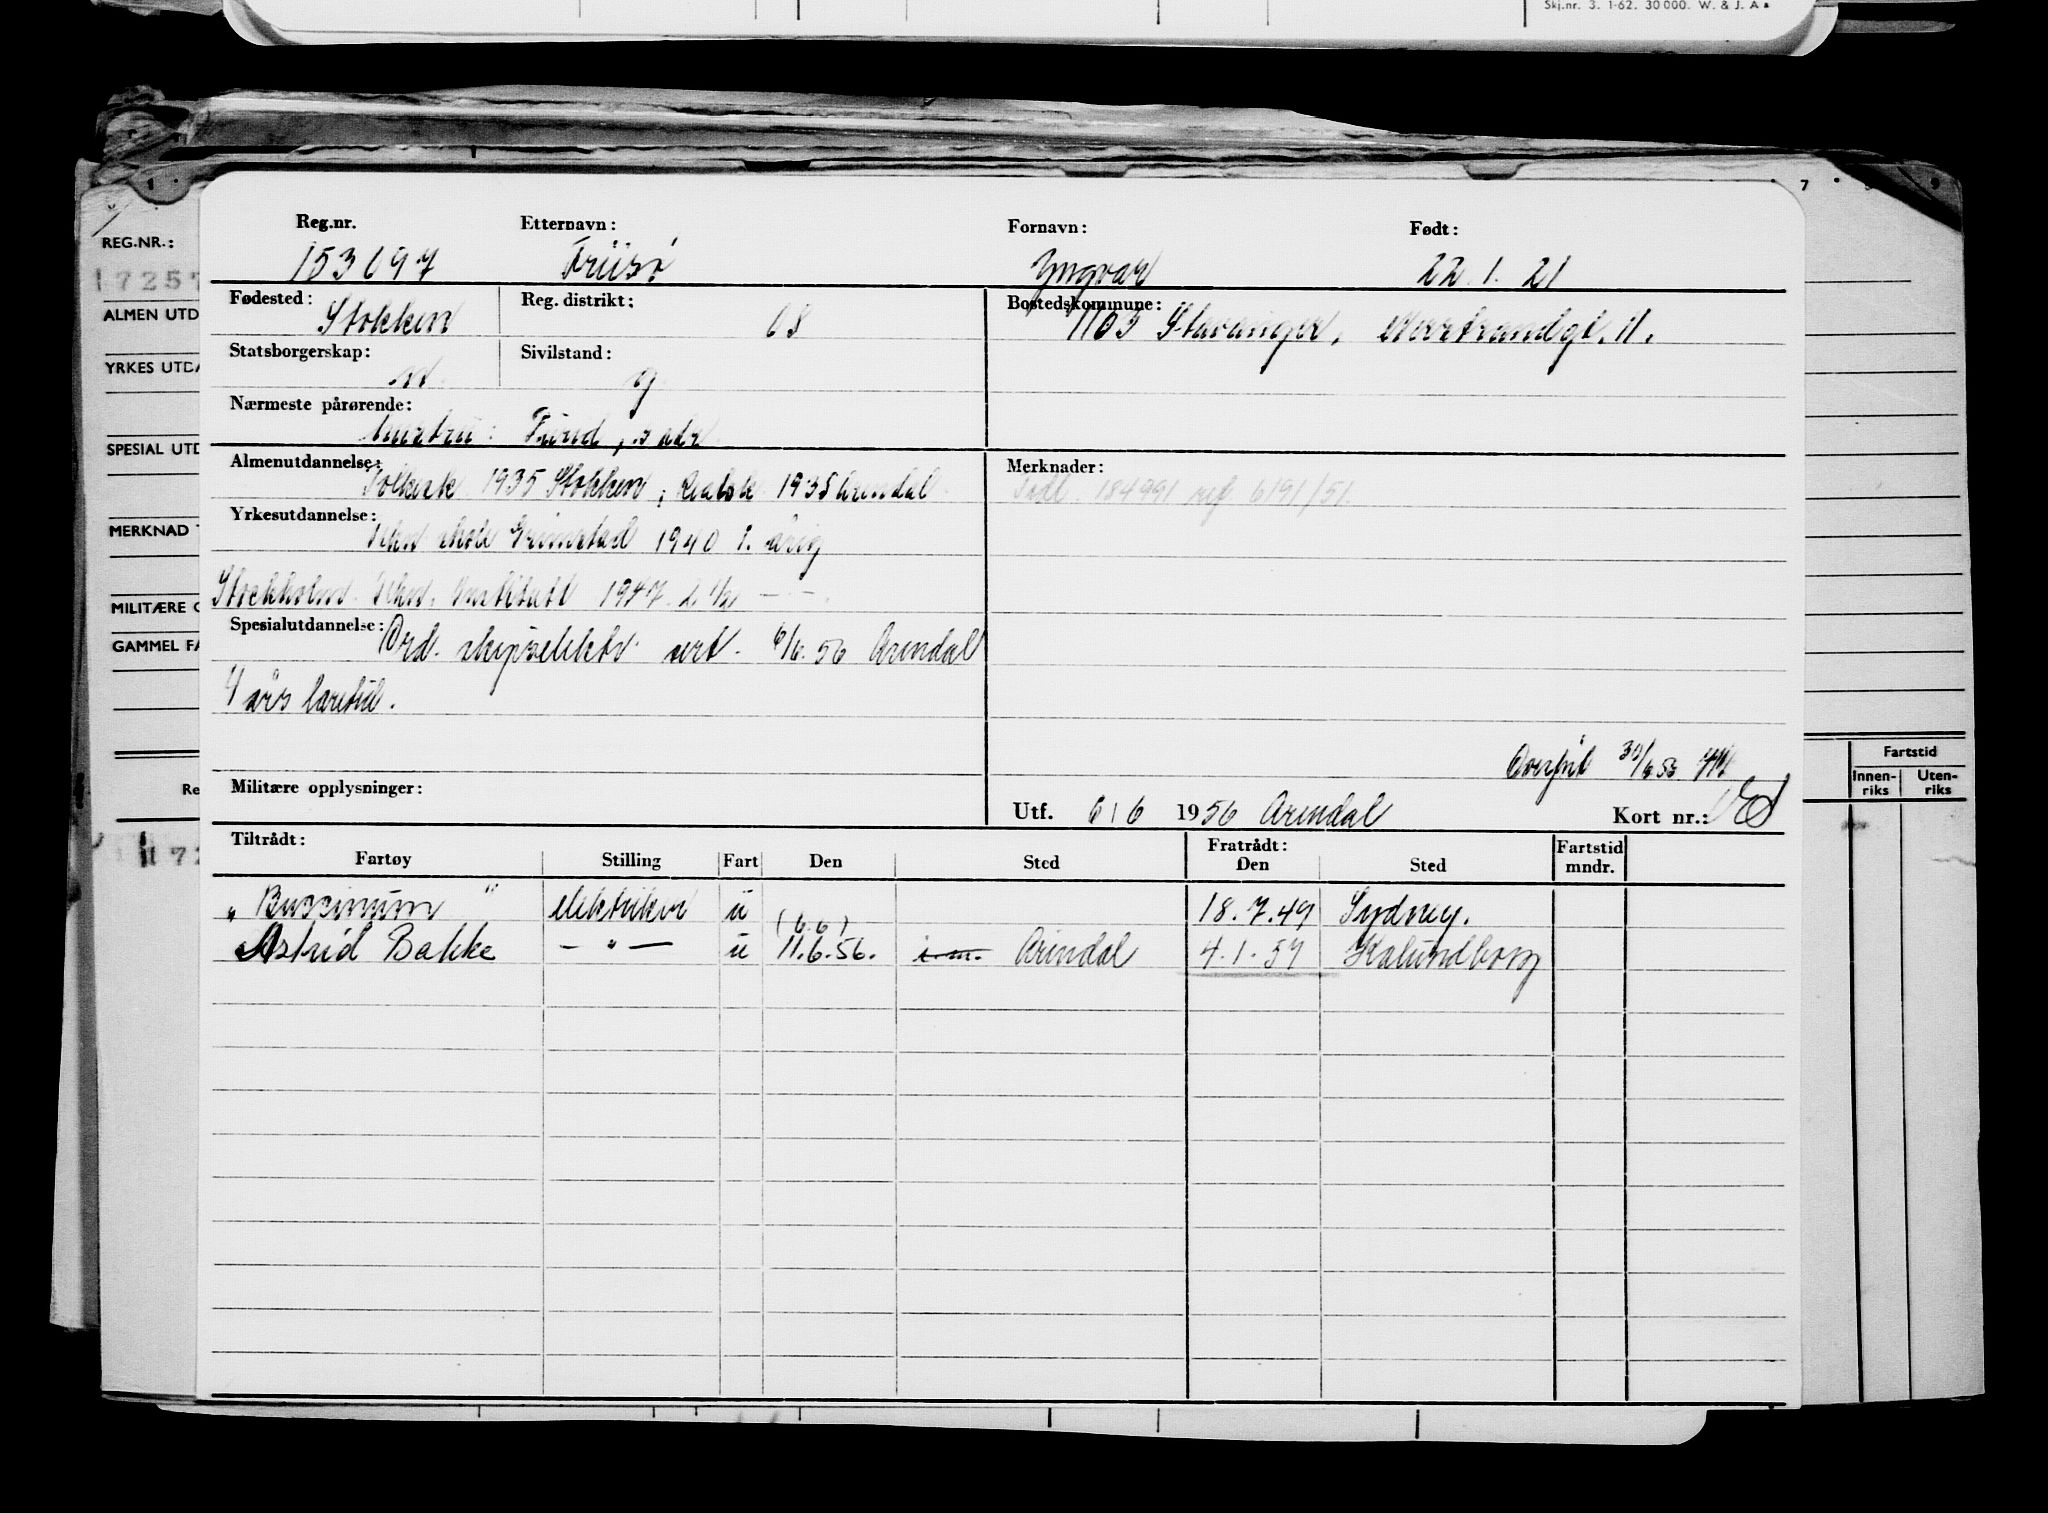 Skj.nr. 3. 1-62. 30 000. W. & J. A.s
7 9
REG.NR.:
17257
ALMEN UTD
YRKES UTDA
SPESIAL UTD
MERKNAD T
MILITÆRE O
GAMMEL FA
Re
172
Reg.nr. Etternavn: Fornavn: Født:
153097 Friisø Yngvar 22.1.21
Fødested: Stokken Reg. distrikt: 08 Bostedskommune: 1103 Stavanger,
Statsborgerskap: n. Sivilstand: g.
Nærmeste pårørende:
Hustru: s. adr.
Almenutdannelse: Folkesk. 1935 Stokken, Realsk. 1938 Arendal
Merknader:
184991 6191/51.
Yrkesutdannelse: Tekn skole Grimstad 1940 1. årig
Stockholm Tekn. Institutt 1947 2 1/2 — " —
Spesialutdannelse: Ord. skipselektr. sert. 6/6.56 Arendal
4 års læretid.
Overført 30/6 56
Militære opplysninger:
Utf. 6/6 1956 Arendal Kort nr.:
Tiltrådt: Fratrådt:
Fartøy Stilling Fart Den Sted Den Sted Fartstid mndr.
"Buccinum" elektriker u 18.7.49 Sydney.
(6.6)
Astrid Bakke — " — u 11.6.56. Arendal 4.1.57 Kalundborg
Fartstid
Innen-riks Uten-riks